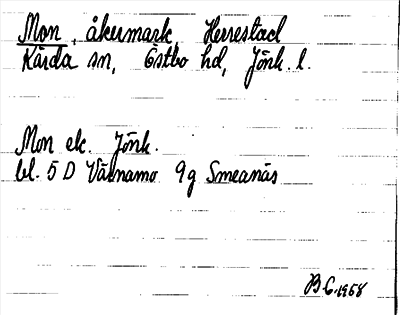 Mon, åkermark, Herrestad
Kärda sn, Östbo hd, Jönk. l.
Mon ek. Jönk.
bl. 5 D Värnamo 9g Smeanäs
B G. 1958